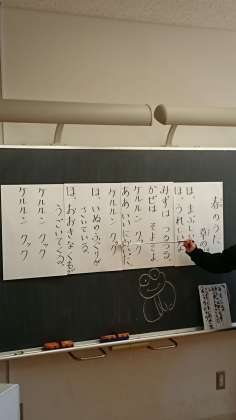 春のうた
草の
ほっ、まぶしい
ほっ、うれしい
みずは つるつる。
かぜは そよそよ
ケルルン クック
ああいいにおいだ
ケルルン クック
ほっ、いぬのふぐりが
さいている。
ほっ、おおきなくもが
うごいてくる
ケルルン クック
ケルルン クック